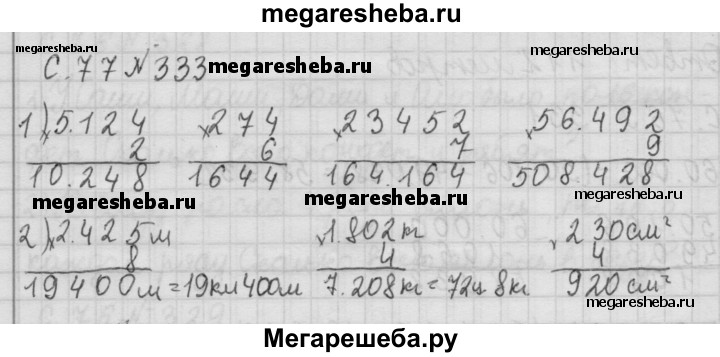 megaresheba.ru
megaresheba.ru megaresheba.ru
С. 77 № 333 megaresheba.ru
1) х 5.124 х 274 х 23452 х 56.492
2 6 7 9
10.248 1644 164.164 508.428
megaresheba.ru megaresheba.ru
2) х 2.425м х 1.802кг х 230см²
8 4 4
19400м=19км400м 7.208кг=72ц 8кг 920см²
megaresheba.ru megaresheba.ru
Мегарешеба.ру